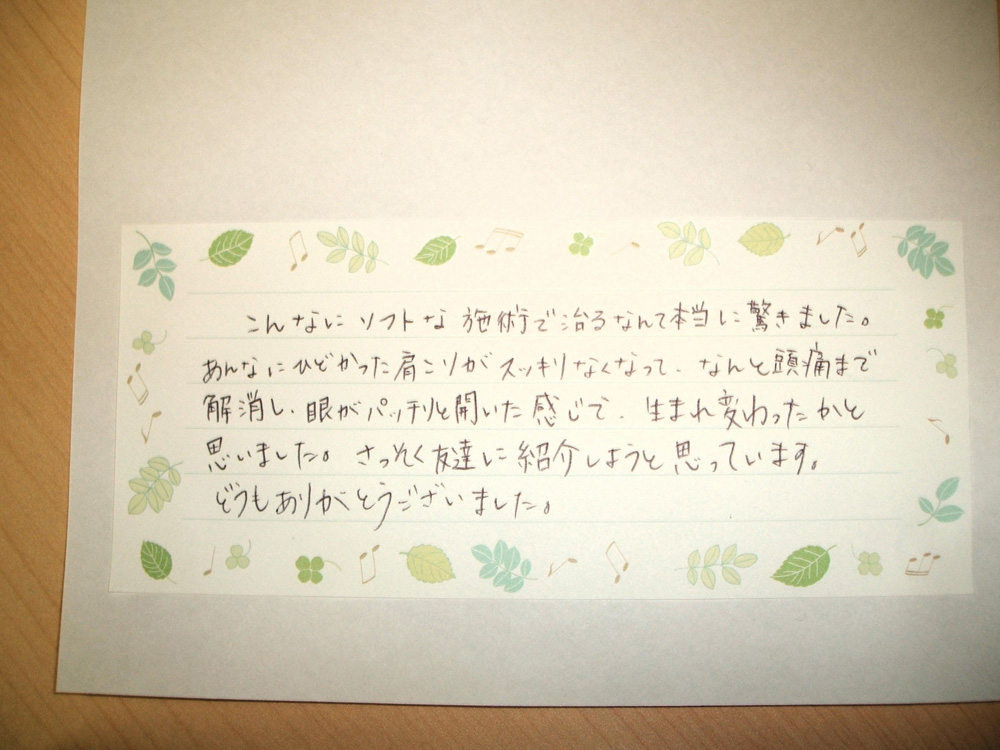 こんなに ソフトな 施術で治るなんて本当に驚きました。
あんなにひどかった肩こりがスッキリなくなって、なんと頭痛まで
解消し、眼がパッチリと開いた感じで、生まれ変わったかと
思いました。さっそく友達に紹介しようと思っています。
どうもありがとうございました。